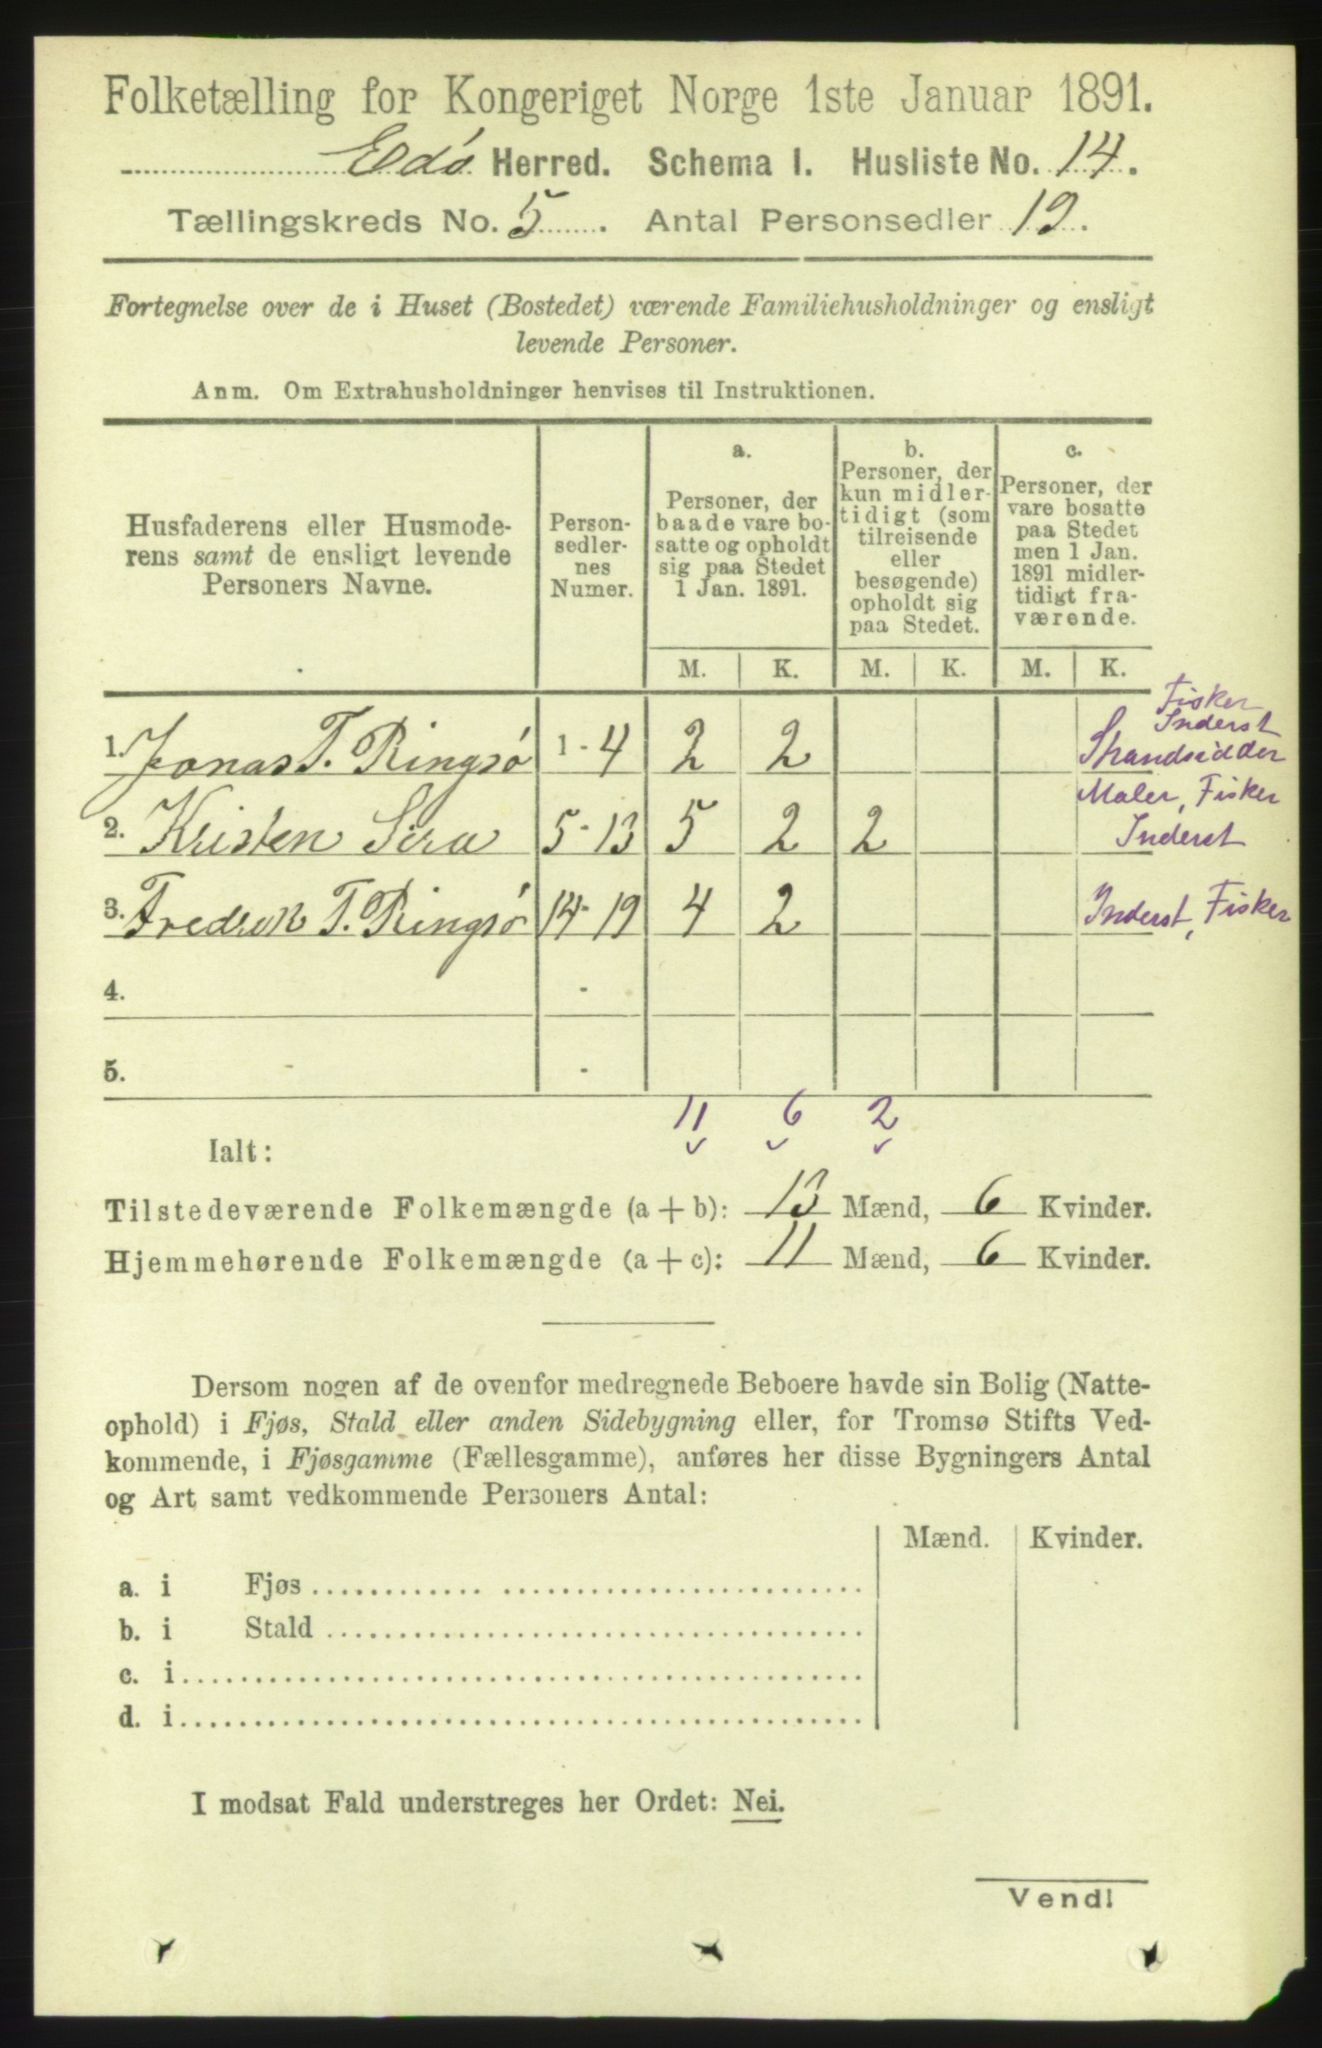 Folketælling for Kongeriget Norge 1ste Januar 1891.
Edø Herred. Schema I. Husliste No. 14.
Tællingskreds No. 5. Antal Personsedler 19.
Fortegnelse over de i Huset (Bostedet) værende Familiehusholdninger og ensligt
levende Personer.
Anm. Om Extrahusholdninger henvises til Instruktionen.
Husfaderens eller Husmode-
rens samt de ensligt levende
Personers Navne.
Person-
sedler-
nes
Numer.
a.
Personer, der
baade vare bo-
satte og opholdt
sig paa Stedet
1 Jan. 1891.
b.
Personer, der
kun midler-
tidigt (som
tilreisende
eller
besøgende)
opholdt sig
paa Stedet.
c.
Personer, der
vare bosatte
paa Stedet
men 1 Jan.
1891 midler-
tidigt fra-
værende.
M. K. M. K. M. K.
Fisker
Inderst
1. Jonas T. Ringsø 1 - 4 2 2 Strandsidder
Maler, Fisker
2. Kristen Sira 5 - 13 5 2 2 Inderst
3. Fredrik T. Ringsø 14 - 19 4 2 Inderst, Fisker
4. -
5. -
11 6 2
Ialt:
Tilstedeværende Folkemængde (a + b): 13 Mænd, 6 Kvinder.
Hjemmehørende Folkemængde (a + c): 11 Mænd, 6 Kvinder.
Dersom nogen af de ovenfor medregnede Beboere havde sin Bolig (Natte-
ophold) i Fjøs, Stald eller anden Sidebygning eller, for Tromsø Stifts Ved-
kommende, i Fjøsgamme (Fællesgamme), anføres her disse Bygningers Antal
og Art samt vedkommende Personers Antal:
Mænd. Kvinder.
a. i Fjøs
b. i Stald
c. i
d. i
I modsat Fald understreges her Ordet: Nei.
Vend!